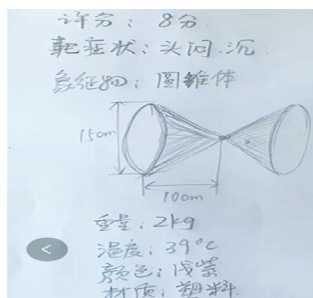 评分：8分
靶症状：头闷.沉
象征物：圆锥体
15cm
10cm
重量：2kg
温度：39℃
颜色：浅紫
材质：塑料